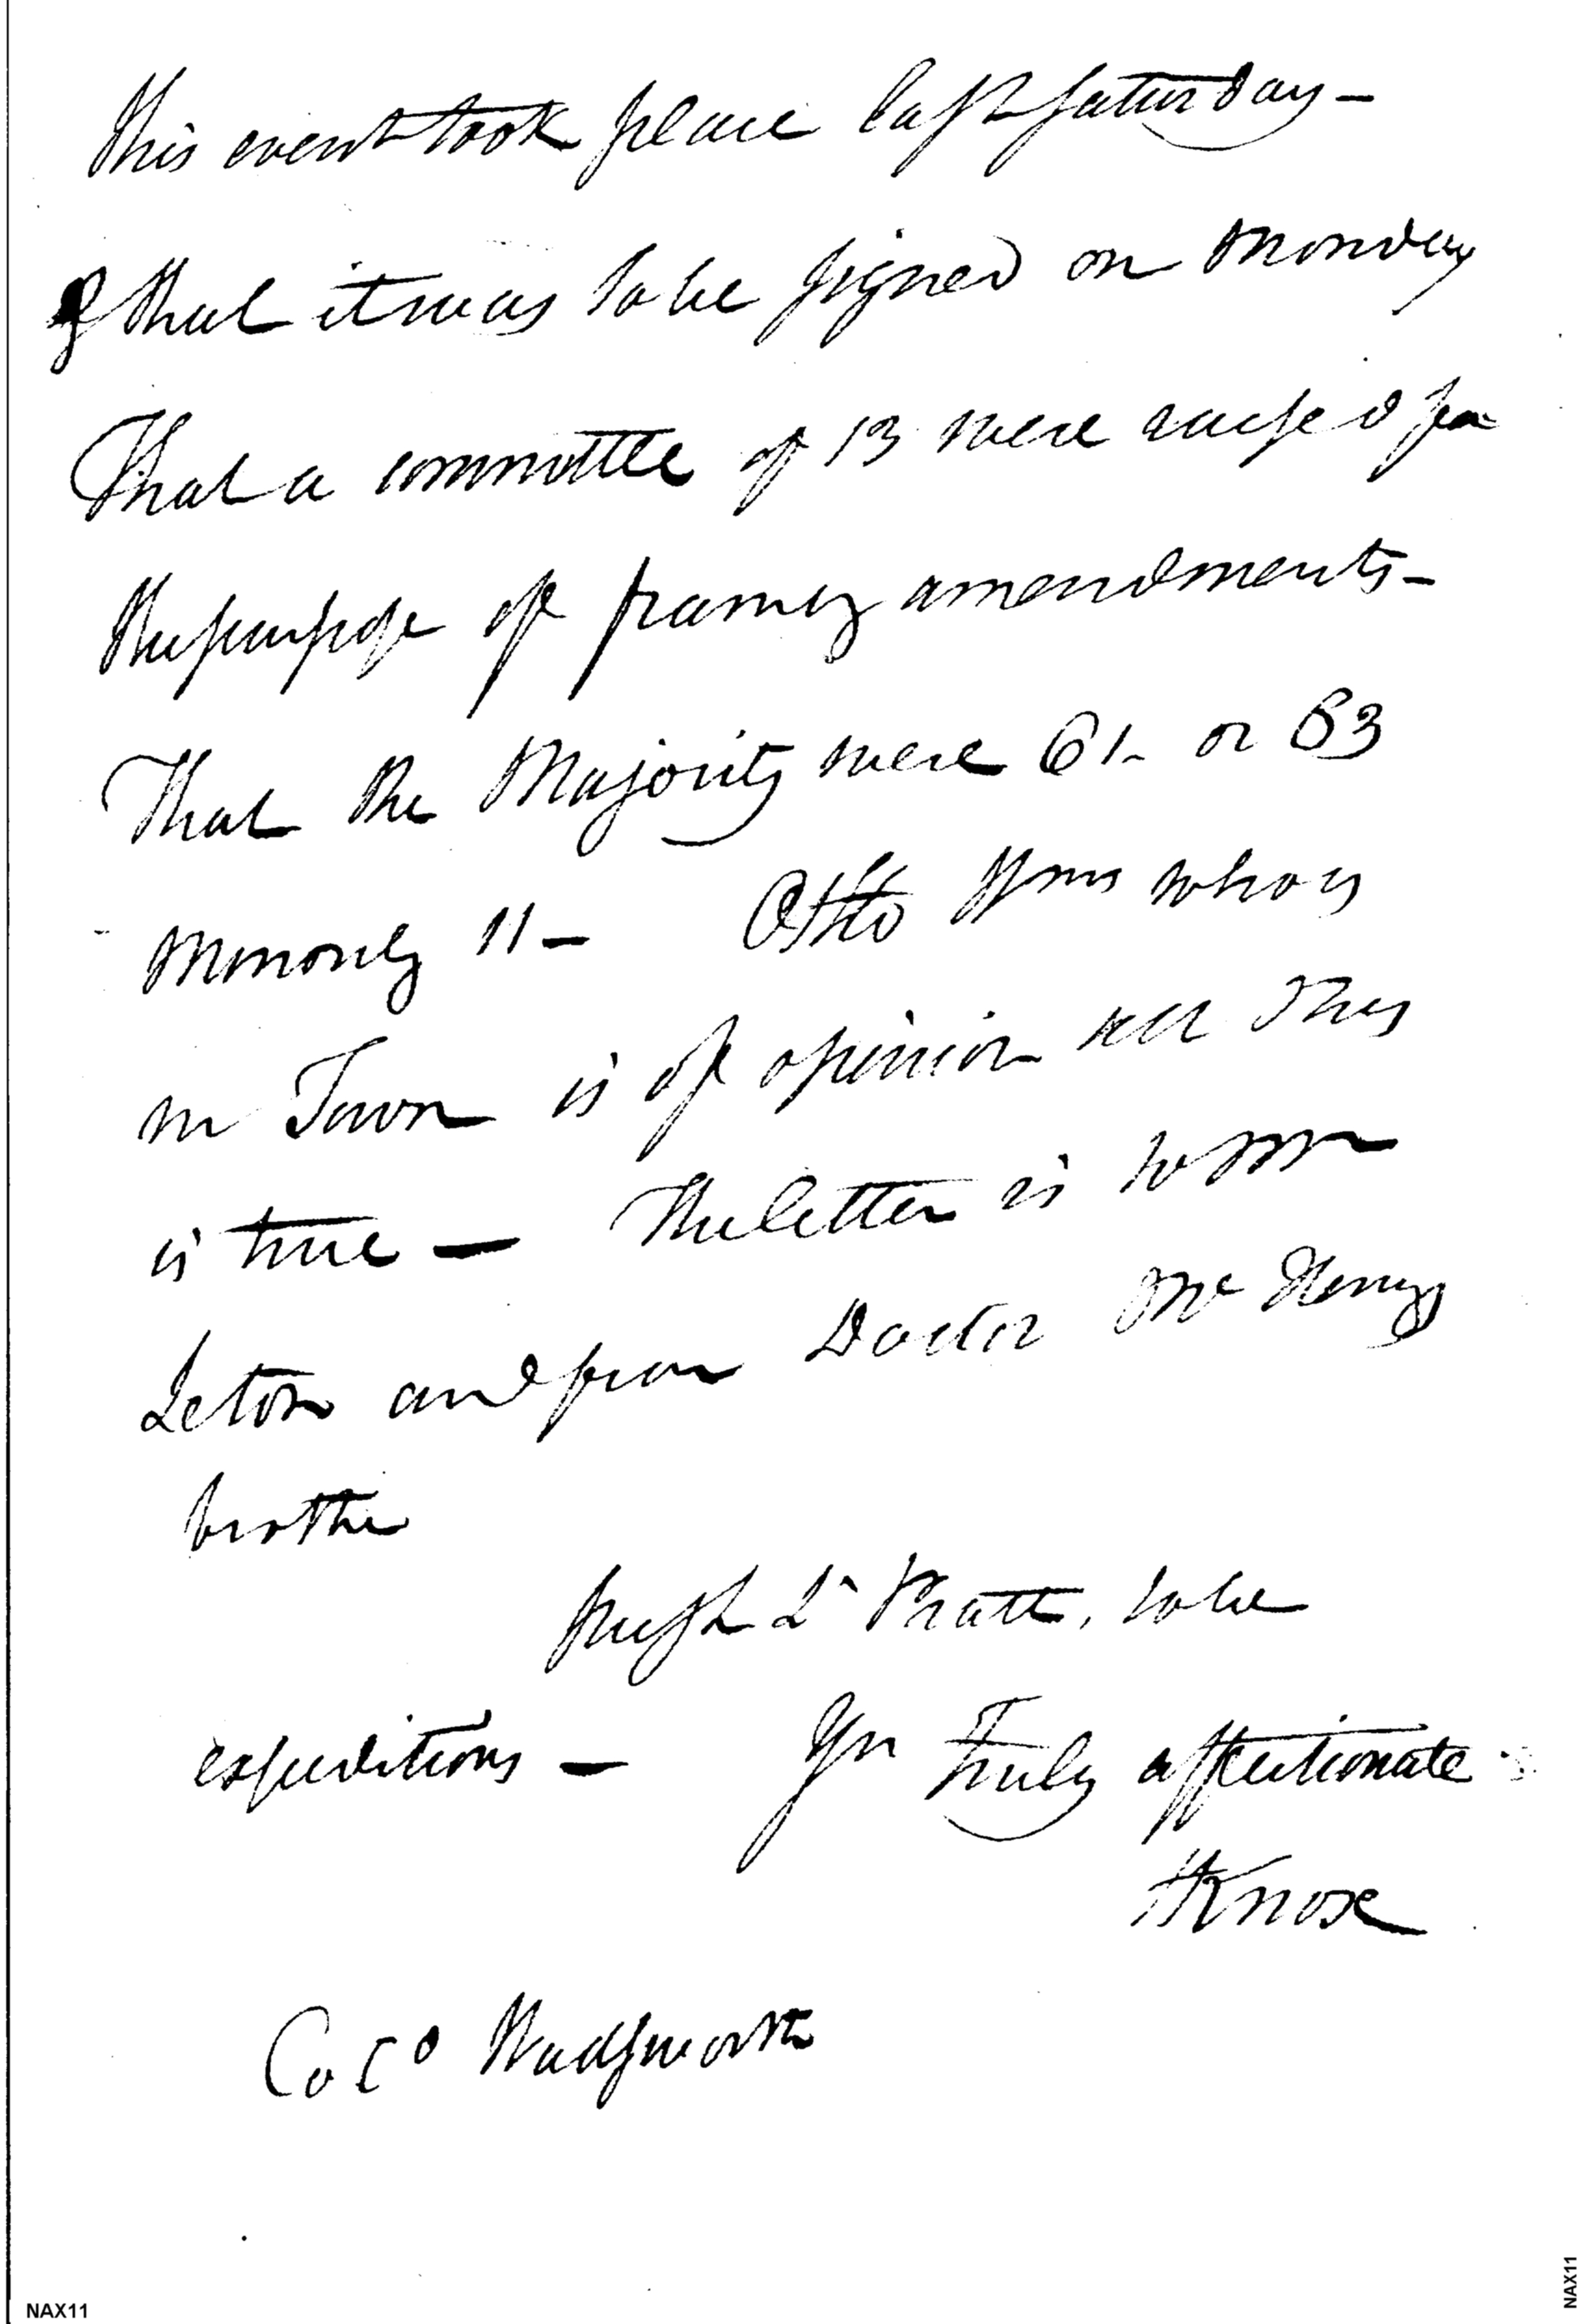 this event took place last saturday —
& that it was to be signed on Monday
That a committee of 13 were raised for
the purpose of framing amendments —
That the Majority were 61 - or 63
Minority 11 — Otho Wms who is
in Town is of opinion all this
is true — The letter is to
and from Doctor Mc Henrys
brothe
push Lt Pratt, to be
expeditious — Yr Truly affectionate
HKnox
Colo Wadsworth
NAX11
NAX11